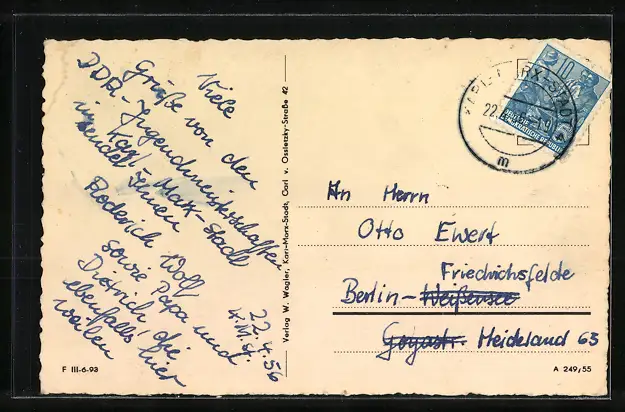 Viele
Grüße von den
DDR-Jugendmeisterschaften
in Karl-Marx-Stadt
sendet Ihnen
Roderich Wolf
sowie Papa und
Dietrich, die
ebenfalls hier
weilen
22.4.56
K.M.St.
F III-6-93
Verlag W. Wagler, Karl-Marx-Stadt, Carl v. Ossietzky-Straße 42
22.
m
10
DEUTSCHE
DEMOKRATISCHE REPUBLIK
An Herrn
Otto Ewert
Friedrichsfelde
Berlin-Weißensee
Goyastr. Heideland 63
A 249/55